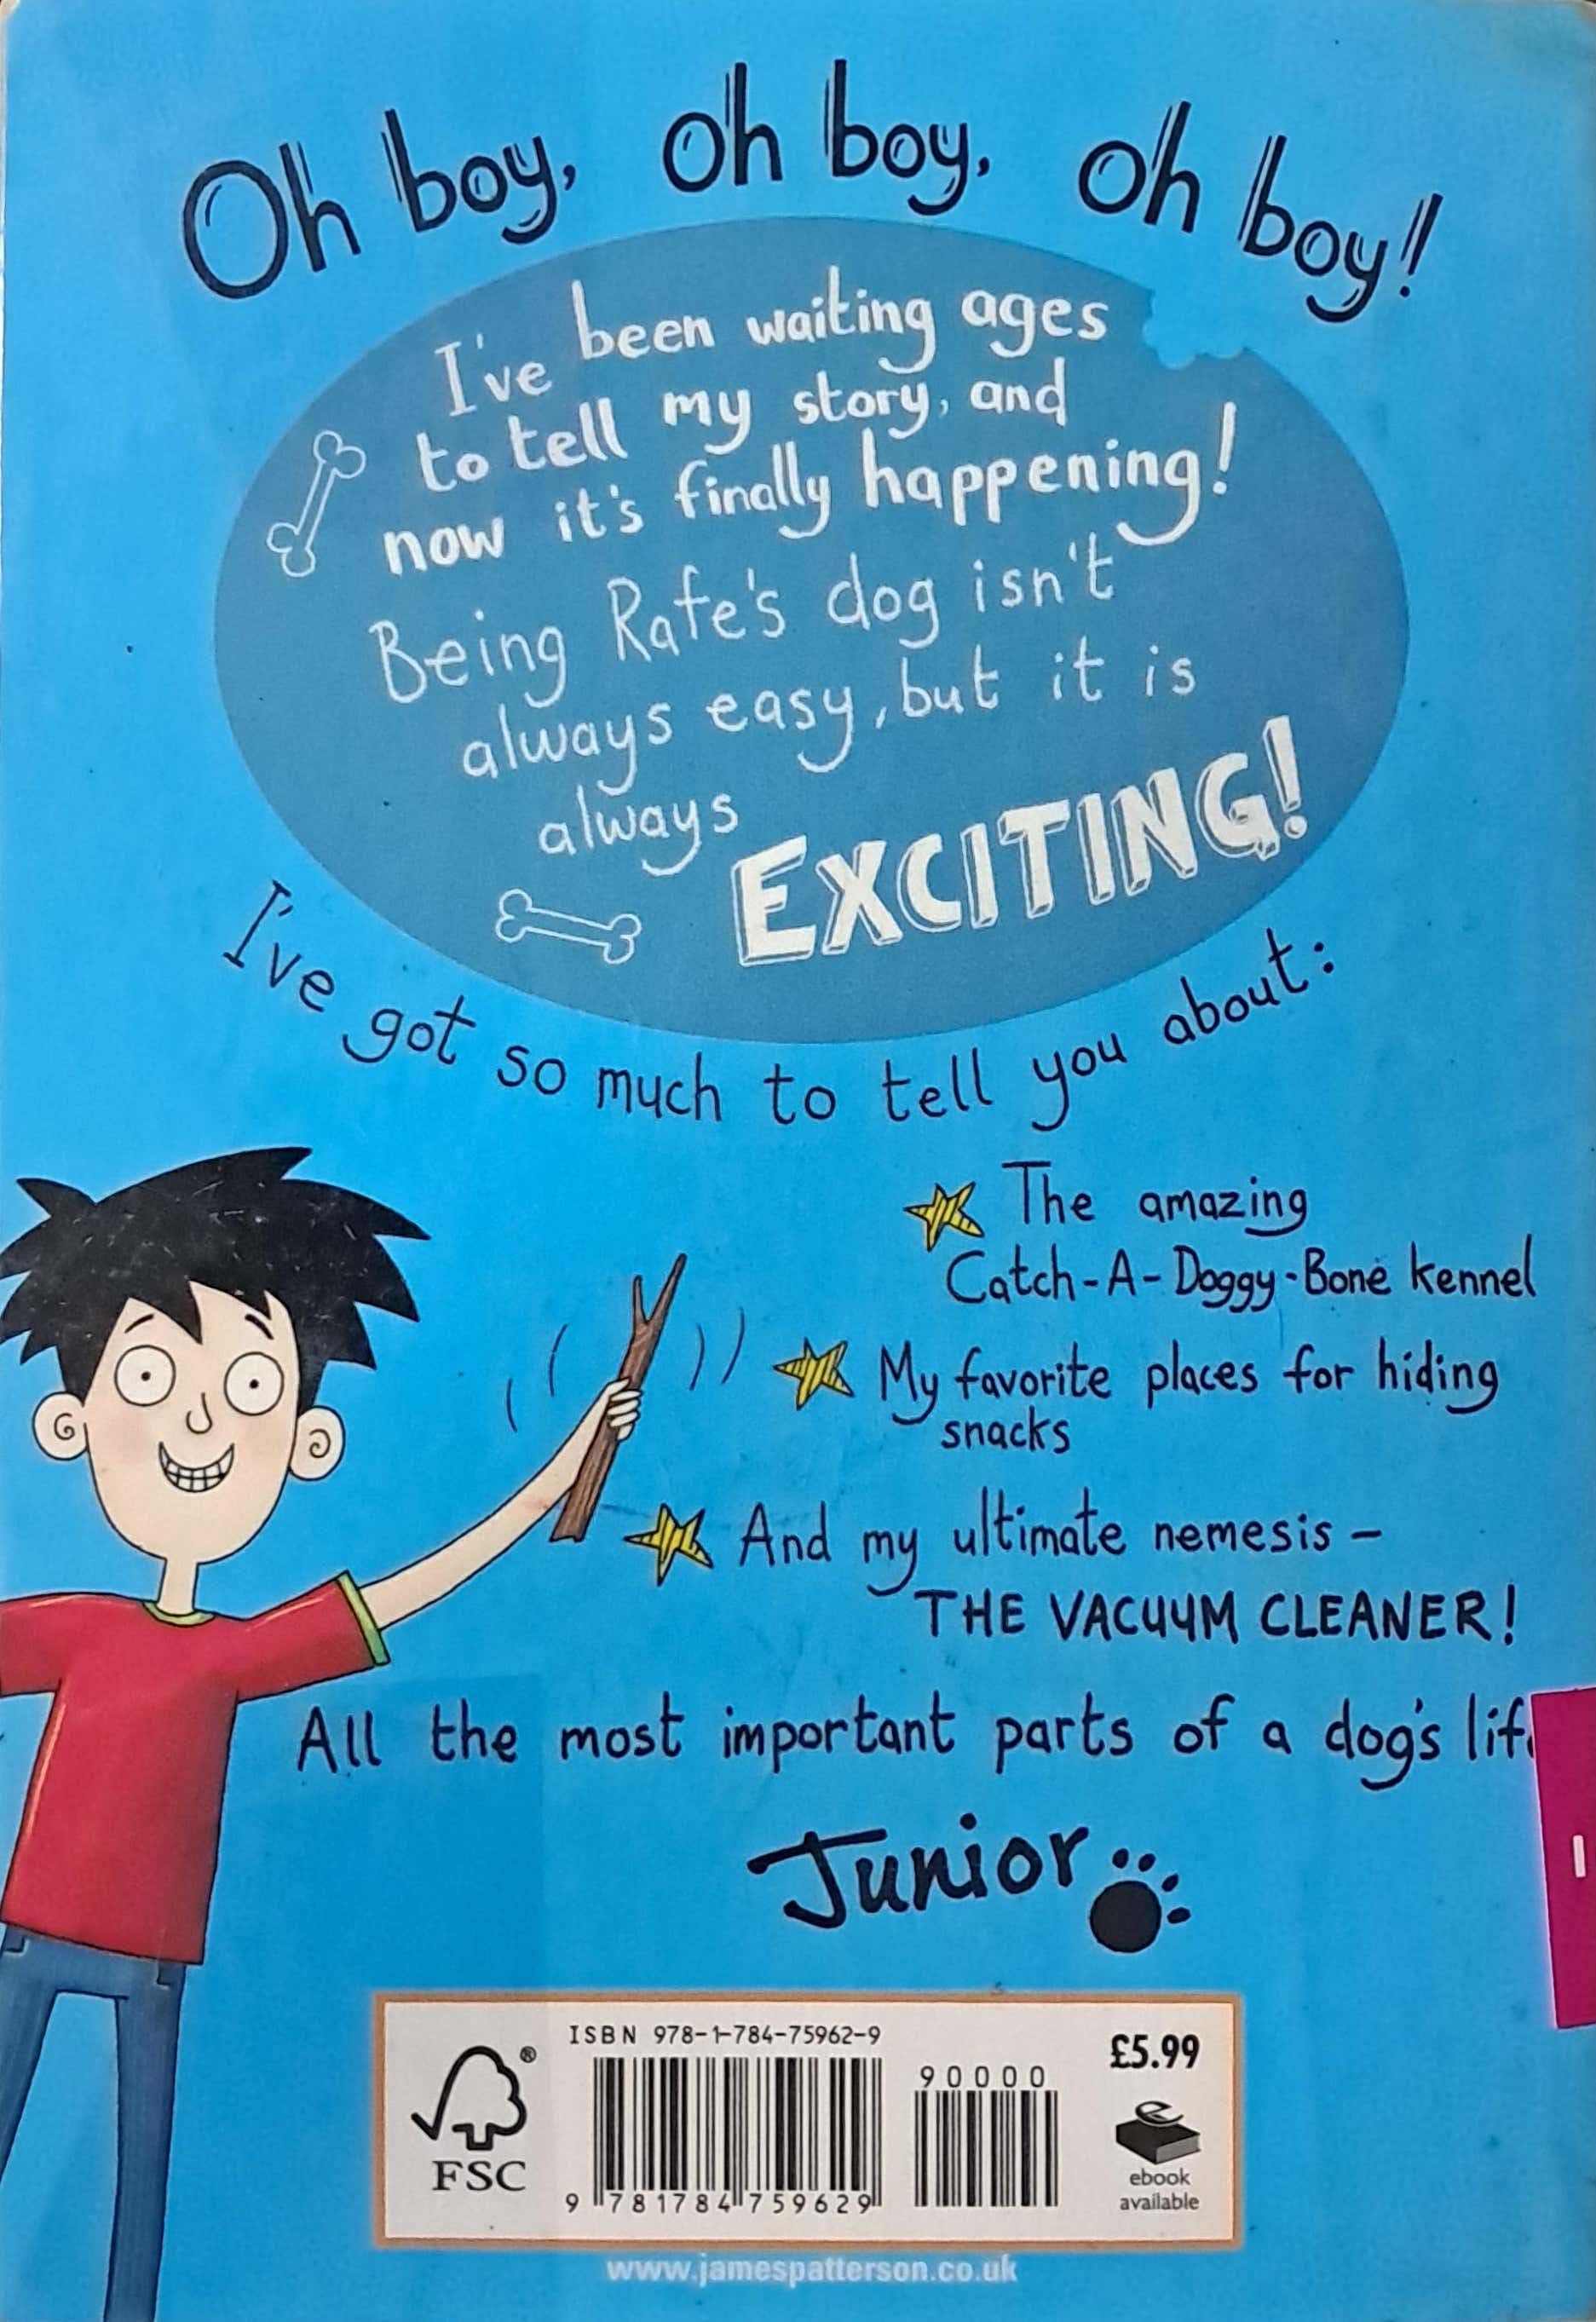 Oh boy, oh boy, oh boy!
I've been waiting ages
to tell my story, and
now it's finally happening!
Being Rafe's dog isn't
always easy, but it is
always EXCITING!
I've got so much to tell you about:
The amazing
Catch-A-Doggy-Bone kennel
My favorite places for hiding
snacks
And my ultimate nemesis –
THE VACUUM CLEANER!
All the most important parts of a dog's lif
Junior
ISBN 978-1-784-75962-9
90000
£5.99
® FSC
9 781784 759629
ebook
available
www.jamespatterson.co.uk